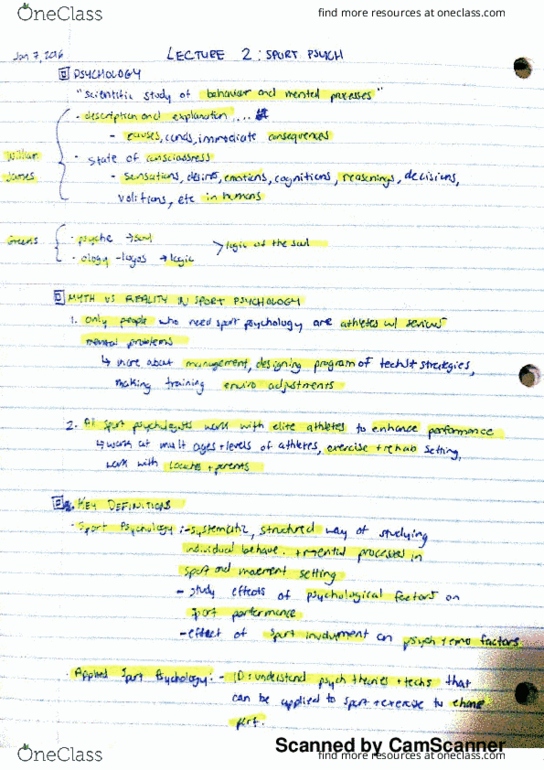 OneClass
find more resources at oneclass.com
Jan 7, 2016
LECTURE 2: SPORT PSYCH
PSYCHOLOGY
"scientific study of behaviour and mental processes"
- description and explanation ....
- causes, conds, immediate consequences
William
James
- state of consciousness
- sensations, desires, emotions, cognitions, reasonings, decisions,
volitions, etc in humans
Greeks
- psyche → soul
> logic of the soul
- ology - logos → logic
MYTH VS REALITY IN SPORT PSYCHOLOGY
1. Only people who need sport psychology are athletes w/ serious
mental problems
↳ more about management, designing program of techs + strategies,
making training enviro adjustments
2. All sport psychologists work with elite athletes to enhance performance
↳ work at mult ages + levels of athletes, exercise + rehab setting,
work with coaches + parents
KEY DEFINITIONS
- Sport Psychology: - systematic, structured way of studying
individual behave. + mental processes in
sport and movement setting
- study effects of psychological factors on
sport performance
- effect of sport involvement on psych + emo factors
- Applied Sport Psychology: - ID + understand psych theories + techs that
can be applied to sport + exercise to
Scanned by CamScanner
OneClass
find more resources at oneclass.com